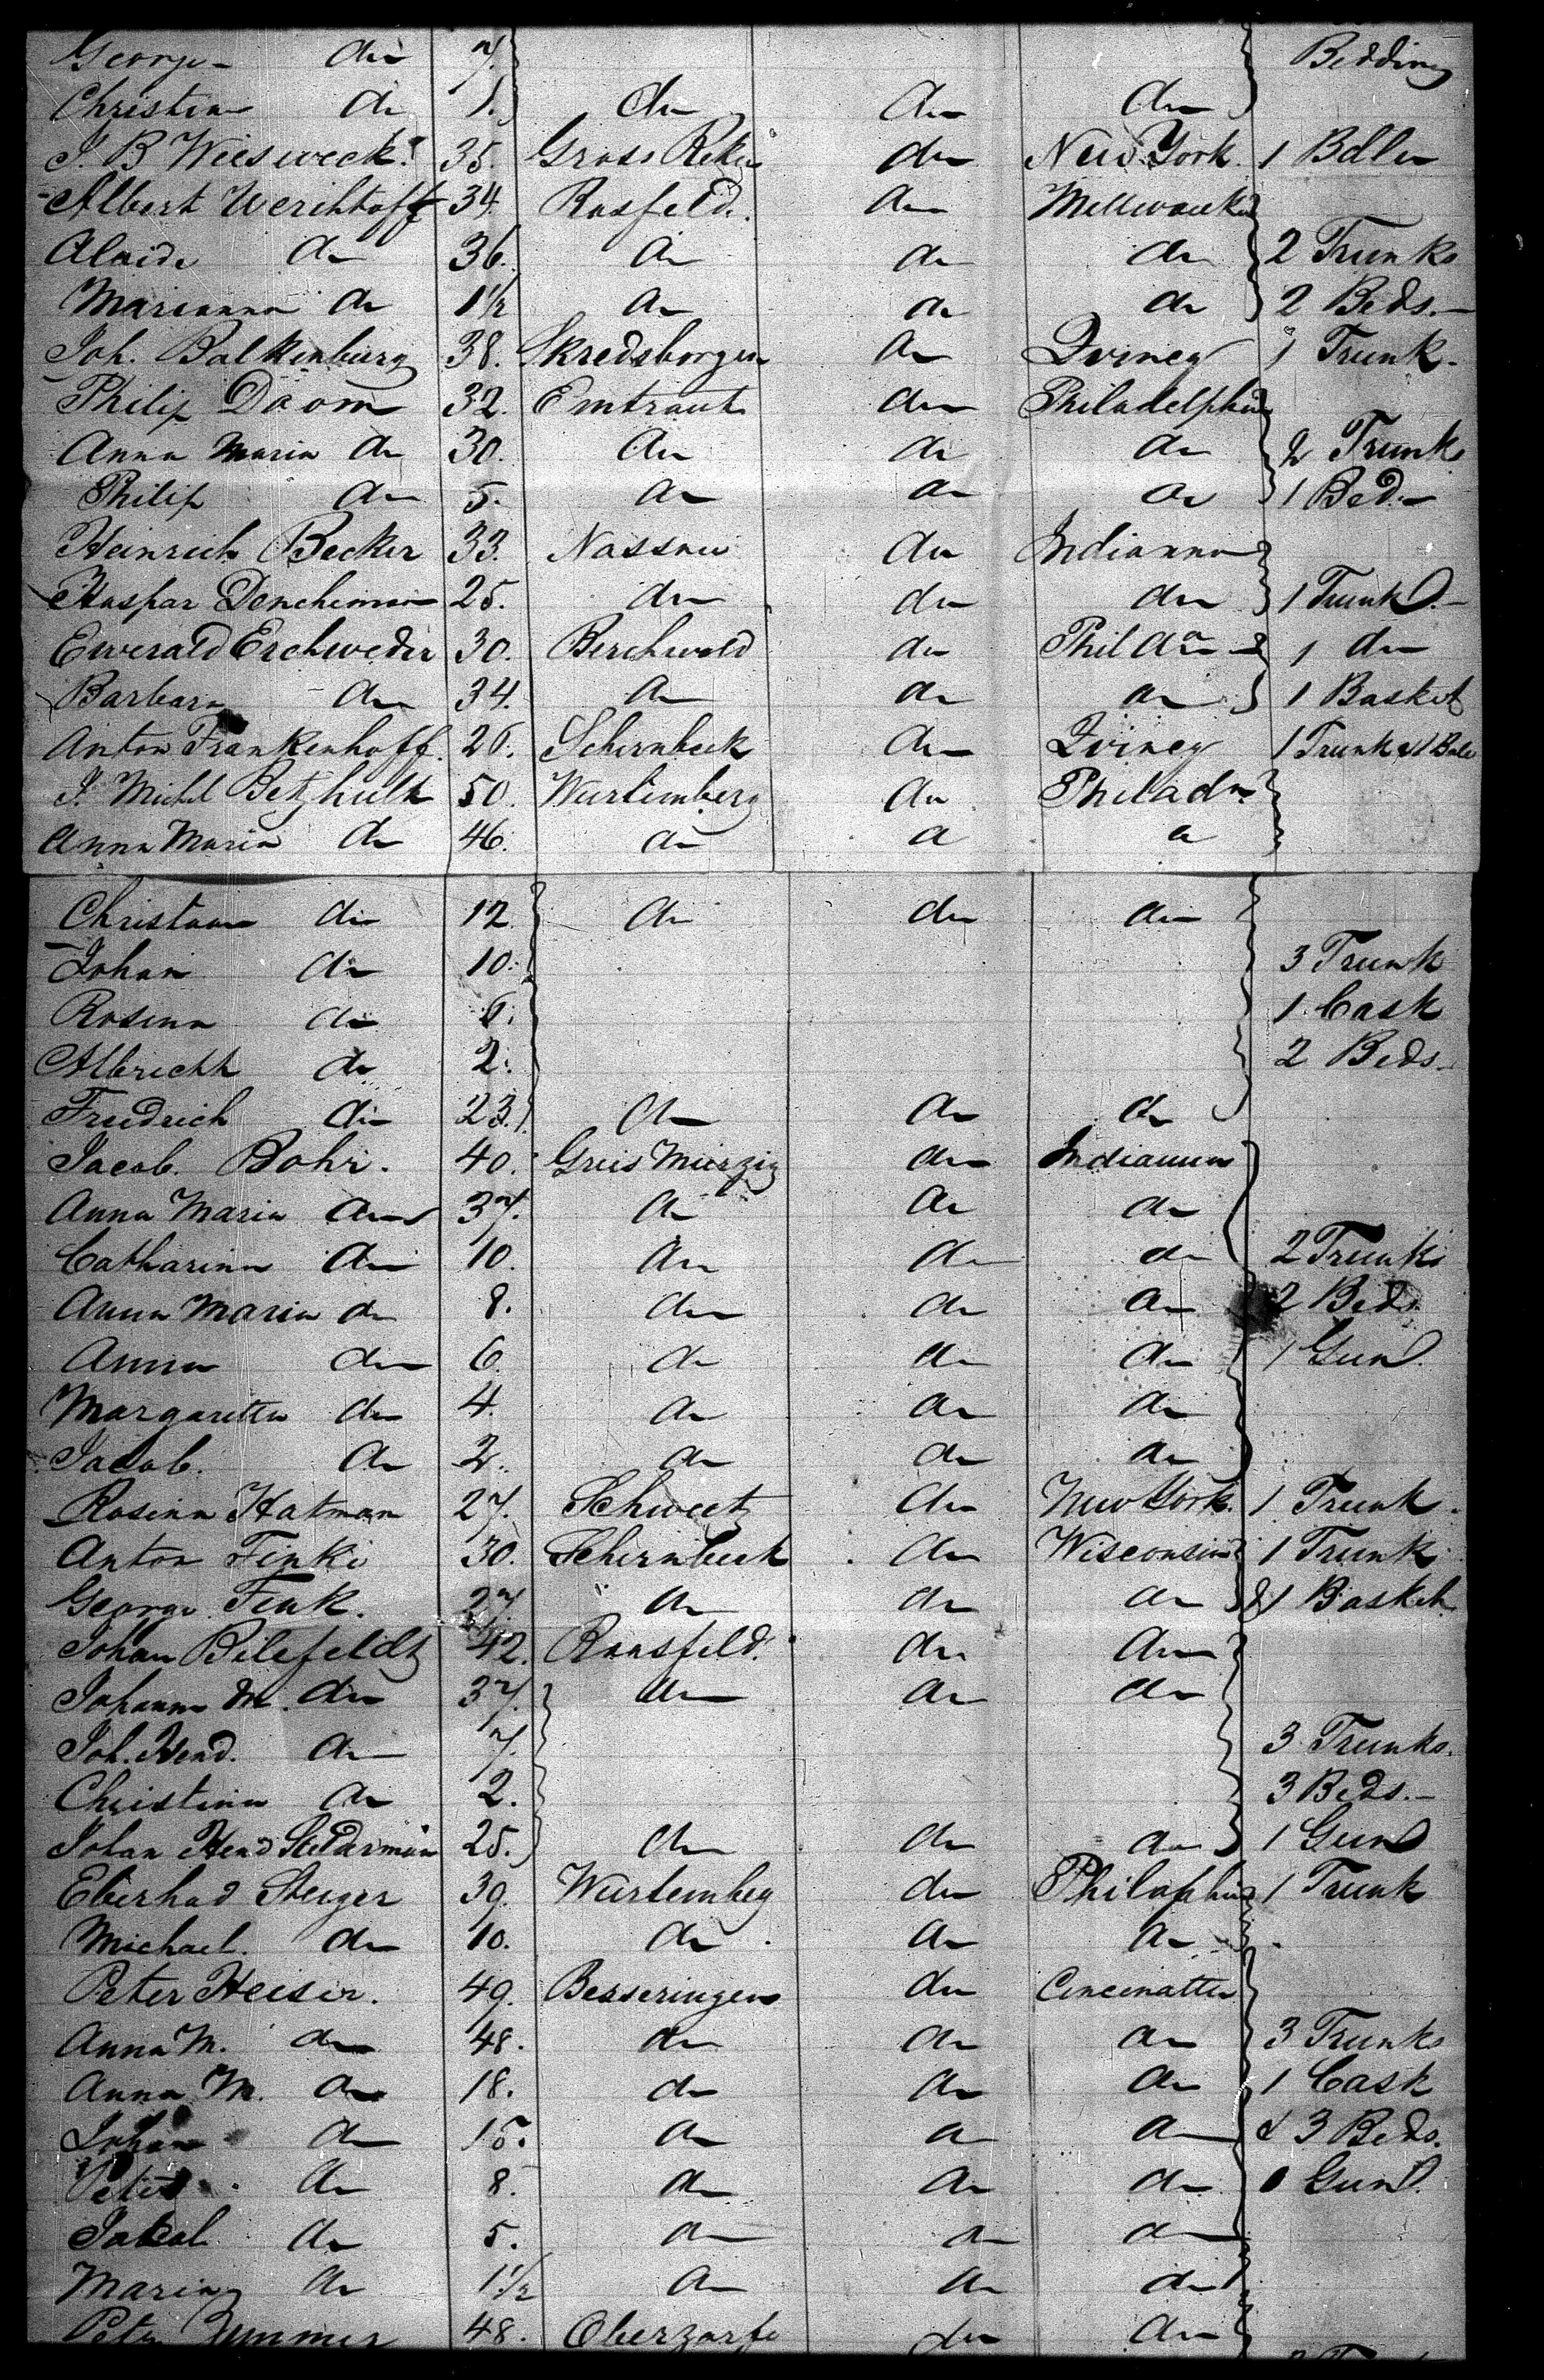 George do 7. Bedding
Christian do 1. do do do
J. B Wiesweck. 35. Gross Reken do New York. 1 Bdle
Albert Werihhoff 34. Rasfeld. do Mellwauke
Alaide do 36. do do do 2 Trunks
Marianna do 1½ do do do 2 Beds.
Joh. Balkenburg 38. Skredsborgen do Quincy 1 Trunk.
Philip Daom 32. Emtraut do Philadelphia
Anna Maria do 30. do do do 2 Trunk
Philip do 5. do do do 1 Bed.
Heinrich Becker 33. Nassau do Indianna
Kaspar Dencheman 25. do do do 1 Trunk.
Ewerald Erchweder 30. Berchwold do Philda 1 do
Barbara do 34. do do do 1 Basket
Anton Frankenhoff. 26. Schernbeck do Quincy 1 Trunk & 1 Bale
J. Michl Betzhult 50. Wurtemberg do Philada.
Anna Maria do 46. do do do
Christian do 12 do do do
Johan do 10. 3 Trunk
Rosina do 6. 1 Cask
Albrecht do 2. 2 Beds
Freedrich do 23. do do do
Jacob. Bohr. 40. Greis Merzig do Indianna
Anna Maria do 37. do do do
Catharina do 10. do do do 2 Trunks
Anna Maria do 8. do do do 2 Beds
Anna do 6. do do do 1 Gun.
Margaretta do 4. do do do
Jacob. do 2. do do do
Rosina Hatman 27. Schweet do New York. 1 Trunk.
Anton Finke 30. Schernbeck do Wisconsin 1 Trunk
George Fink. 27. do do do & 1 Basket
Johan Bilefeldt 42. Raasfeld. do do
Johanna M. do 37. do do do
Joh. Hend. do 7. 3 Trunks.
Christina do 2. 3 Beds.
Johan Hend Stedarman 25. do do do 1 Gun
Eberhad Steiger 39. Wurtembeg do Philaphia 1 Trunk
Michael. do 10. do do do
Peter Heiser. 49. Besseringen do Cincinatti
Anna M. do 48. do do do 3 Trunks
Anna M. do 18. do do do 1 Cask
Johan do 15. do do do & 3 Beds.
Peter do 8. do do do 1 Gun.
Jakob do 5. do do do
Maria do 1½ do do do
Peter Zimmer 48. Oberzarfe do do